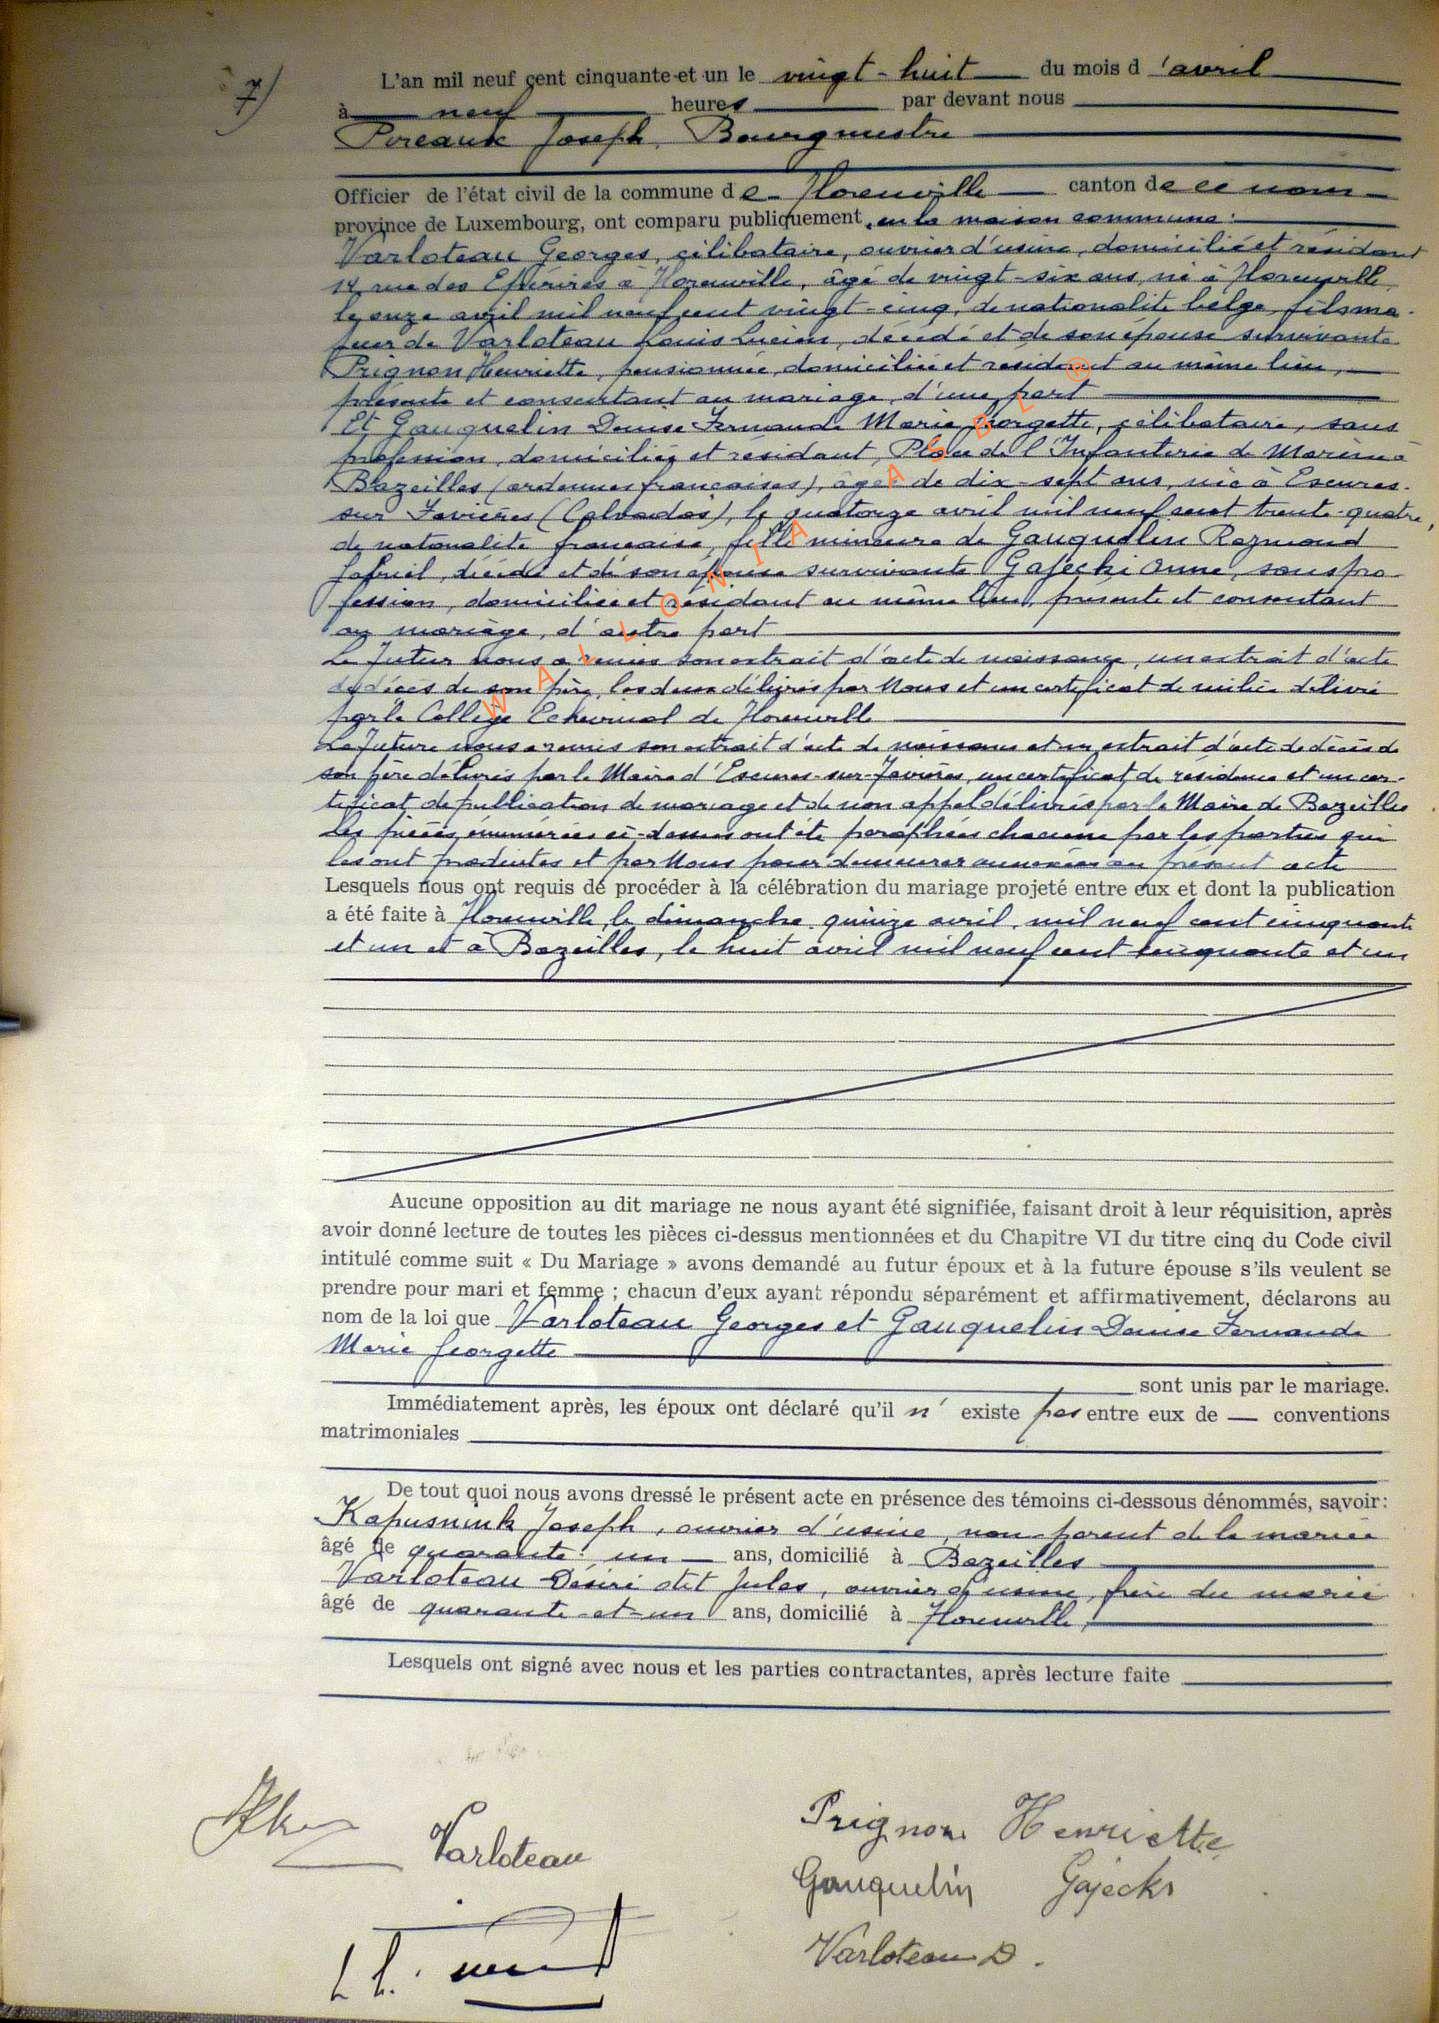 7)
L'an mil neuf cent cinquante et un le vingt-huit du mois d'avril
à neuf heures par devant nous
Poreaux Joseph, Bourgmestre
Officier de l'état civil de la commune de Florenville canton de ce nom
province de Luxembourg, ont comparu publiquement, en la maison commune :
Varloteau Georges, célibataire, ouvrier d'usine, domicilié et résidant
14, rue des Epérires à Florenville, âgé de vingt-six ans, né à Florenville,
le onze avril mil neuf cent vingt-cinq, de nationalité belge, fils ma-
jeur de Varloteau Louis Lucien, décédé et de son épouse survivante
Prignon Henriette, pensionnée, domiciliée et résidant au même lieu,
présente et consentant au mariage, d'une part
Et Gauquelin Denise Fernande Marie Georgette, célibataire, sans
profession, domiciliée et résidant, Place de l'Infanterie de Marine à
Bazeilles (ardennes françaises), âgée de dix-sept ans, née à Escures-
sur-Favières (Calvados), le quatorze avril mil neuf cent trente-quatre,
de nationalité française, fille mineure de Gauquelin Raymond
Gabriel, décédé et de son épouse survivante Gajecki Anne, sans pro-
fession, domiciliée et résidant au même lieu, présente et consentant
au mariage, d'autre part
Le Futur nous a remis son extrait d'acte de naissance, un extrait d'acte
de décès de son père, les deux délivrés par Nous et un certificat de milice délivré
par le Collège Echevinal de Florenville
La Future nous a remis son extrait d'acte de naissance et un extrait d'acte de décès de
son père délivrés par le Maire d'Escures-sur-Favières, un certificat de résidence et un cer-
tificat de publication de mariage et de non appel délivrés par le Maire de Bazeilles
Les pièces énumérées ci-dessus ont été paraphées chacune par les parties qui
les ont produites et par Nous pour demeurer annexées au présent acte
Lesquels nous ont requis de procéder à la célébration du mariage projeté entre eux et dont la publication
a été faite à Florenville, le dimanche quinze avril, mil neuf cent cinquante
et un et à Bazeilles, le huit avril mil neuf cent cinquante et un
Aucune opposition au dit mariage ne nous ayant été signifiée, faisant droit à leur réquisition, après
avoir donné lecture de toutes les pièces ci-dessus mentionnées et du Chapitre VI du titre cinq du Code civil
intitulé comme suit « Du Mariage » avons demandé au futur époux et à la future épouse s'ils veulent se
prendre pour mari et femme ; chacun d'eux ayant répondu séparément et affirmativement, déclarons au
nom de la loi que Varloteau Georges et Gauquelin Denise Fernande
Marie Georgette
sont unis par le mariage.
Immédiatement après, les époux ont déclaré qu'il n'existe pas entre eux de conventions
matrimoniales
De tout quoi nous avons dressé le présent acte en présence des témoins ci-dessous dénommés, savoir :
Kapusniak Joseph, ouvrier d'usine, non parent de la mariée
âgé de quarante-un ans, domicilié à Bazeilles
Varloteau Désiré dit Jules, ouvrier d'usine, frère du marié
âgé de quarante-et-un ans, domicilié à Florenville,
Lesquels ont signé avec nous et les parties contractantes, après lecture faite
Varloteau
Prignon Henriette
Gauquelin Gajecki
Varloteau D.
WALLONIA ASBL ®